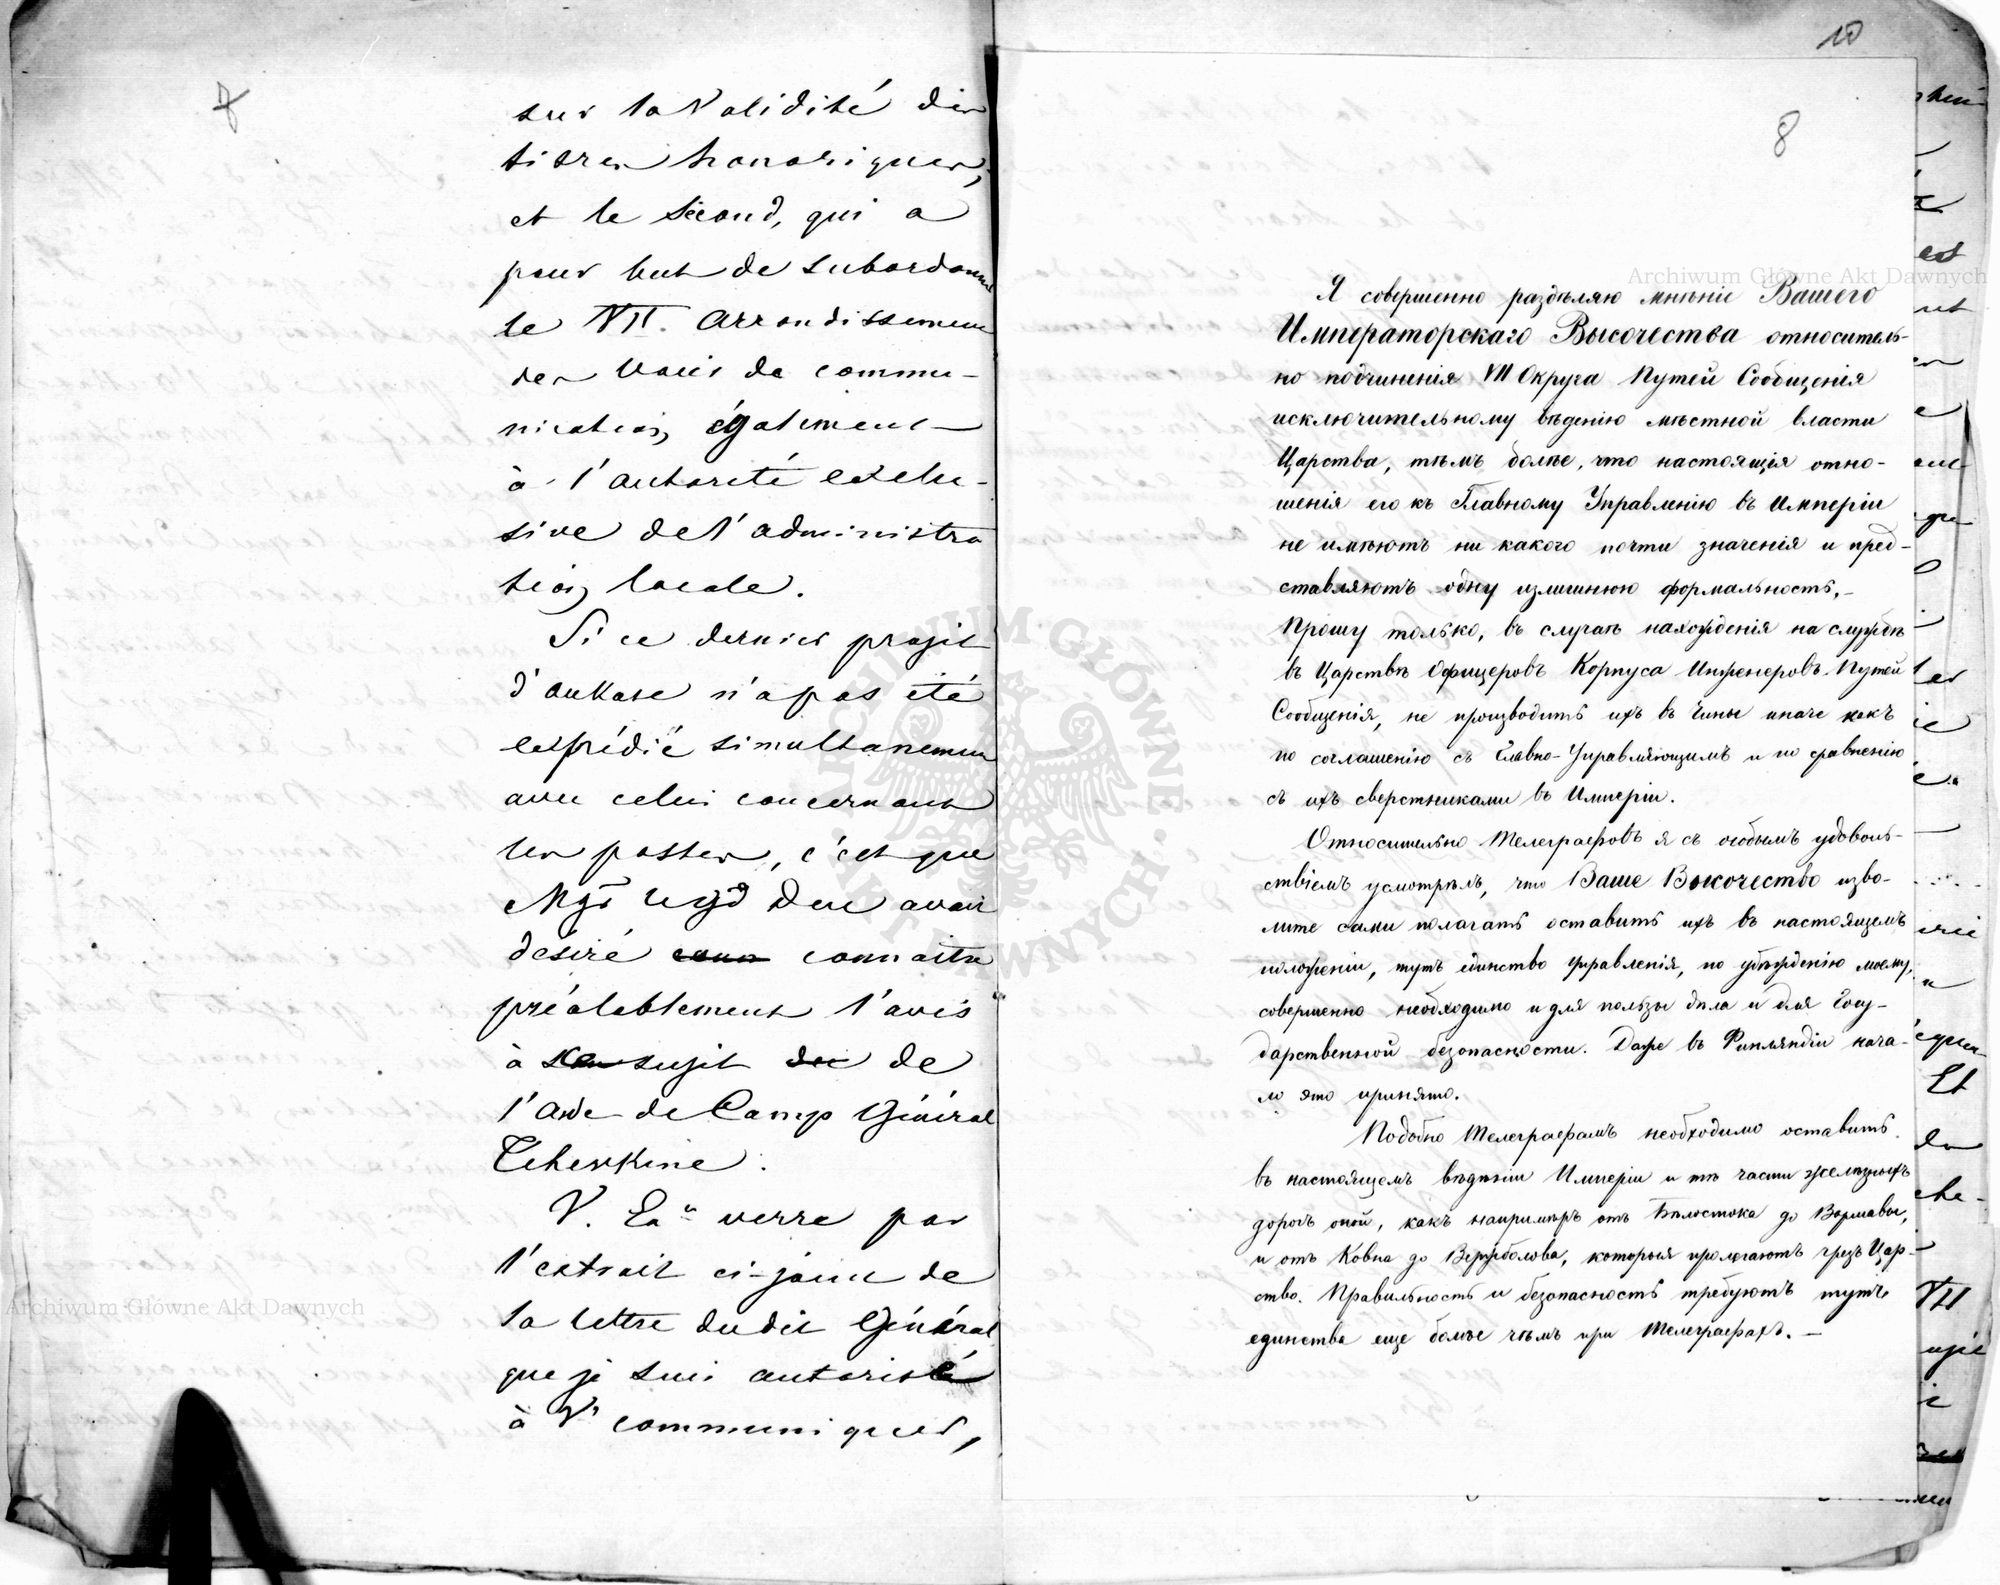 sur la validité des
titres honorifiques,
et le second, qui a
pour but de subordonner
le VII. Arrondissement
des voies de commu-
nication, également
à l'autorité exclu-
sive de l'administra
tion locale.
Si ce dernier projet
d'oukase n'a pas été
expédié simultanement
avec celui concernant
les postes, c'est que
Mgr le gd Duc avait
désiré connaître
préalablement l'avis
à ce sujet de
l'Aide de Camp Général
Tchevkine.
V. Ex. verra par
l'extrait ci-joint de
la lettre dudit Général
que je suis autorisé
à V. communiquer,
10
8
Я совершенно раздѣляю мнѣніе Вашего
Императорскаго Высочества относитель-
но подчиненія VII Округа Путей Сообщенія
исключительному вѣденію мѣстной власти
Царства, тѣмъ болѣе, что настоящія отно-
шенія его къ Главному Управленію въ Имперіи
не имѣютъ ни какого почти значенія и пред-
ставляютъ одну излишнюю формальность.—
Прошу только, въ случаѣ нахожденія на службѣ
въ Царствѣ Офицеровъ Корпуса Инженеровъ Путей
Сообщенія, не производить ихъ въ Чины иначе какъ
по соглашенію съ Главно-Управляющимъ и по сравненію
съ ихъ сверстниками въ Имперіи.
Относительно Телеграфовъ я съ особымъ удоволь-
ствіемъ усмотрѣлъ, что Ваше Высочество изво-
лите сами полагать оставить ихъ въ настоящемъ
положеніи, тутъ единство управленія, по убѣжденію моему,
совершенно необходимо и для пользы дѣла и для Госу-
дарственной безопасности. Даже въ Финляндіи нача-
ло это принято.
Подобно Телеграфамъ необходимо оставить
въ настоящемъ вѣдѣніи Имперіи и тѣ части желѣзныхъ
дорогъ оной, какъ напримѣръ отъ Бѣлостока до Варшавы,
и отъ Ковна до Вержболова, которыя пролегаютъ чрезъ Цар-
ство. Правильность и безопасность требуютъ тутъ
единства еще болѣе чѣмъ при Телеграфахъ.—
Archiwum Główne Akt Dawnych
Archiwum Główne Akt Dawnych
ARCHIWUM GŁÓWNE · AKT DAWNYCH ·